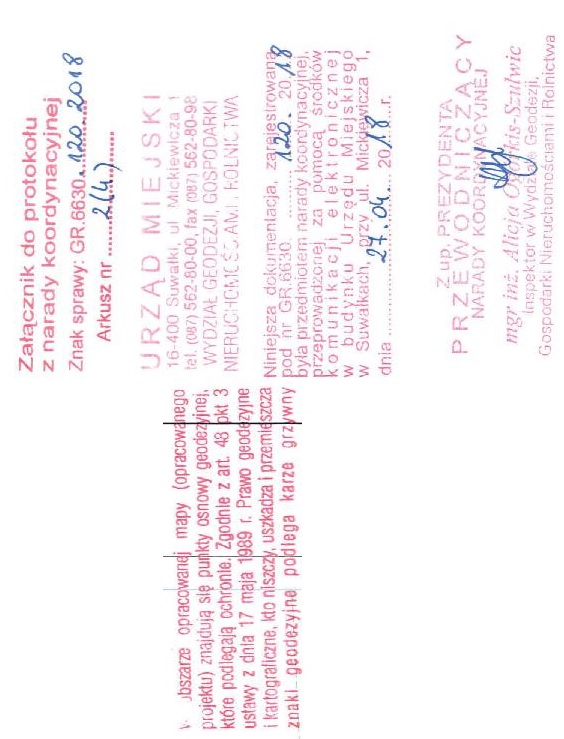 Załącznik do protokołu
z narady koordynacyjnej
Znak sprawy: GR.6630.120.2018
Arkusz nr 2(4)
URZĄD MIEJSKI
16-400 Suwałki, ul. Mickiewicza 1
tel. (087) 562-80-00, fax (087) 562-80-98
WYDZIAŁ GEODEZJI, GOSPODARKI
NIERUCHOMOŚCIAMI I ROLNICTWA
Niniejsza dokumentacja, zarejestrowana
pod nr GR.6630. 120. 2018
była przedmiotem narady koordynacyjnej,
przeprowadzonej za pomocą środków
komunikacji elektronicznej
w budynku Urzędu Miejskiego
w Suwałkach, przy ul. Mickiewicza 1,
dnia 27.04. 2018 r.
Z up. PREZYDENTA
PRZEWODNICZĄCY
NARADY KOORDYNACYJNEJ
mgr inż. Alicja -Szulwic
Inspektor w Wydziale Geodezji,
Gospodarki Nieruchomościami i Rolnictwa
W obszarze opracowanej mapy (opracowanego
projektu) znajdują się punkty osnowy geodezyjnej,
które podlegają ochronie. Zgodnie z art. 48 pkt 3
ustawy z dnia 17 maja 1989 r. Prawo geodezyjne
i kartograficzne, kto niszczy, uszkadza i przemieszcza
znaki geodezyjne podlega karze grzywny